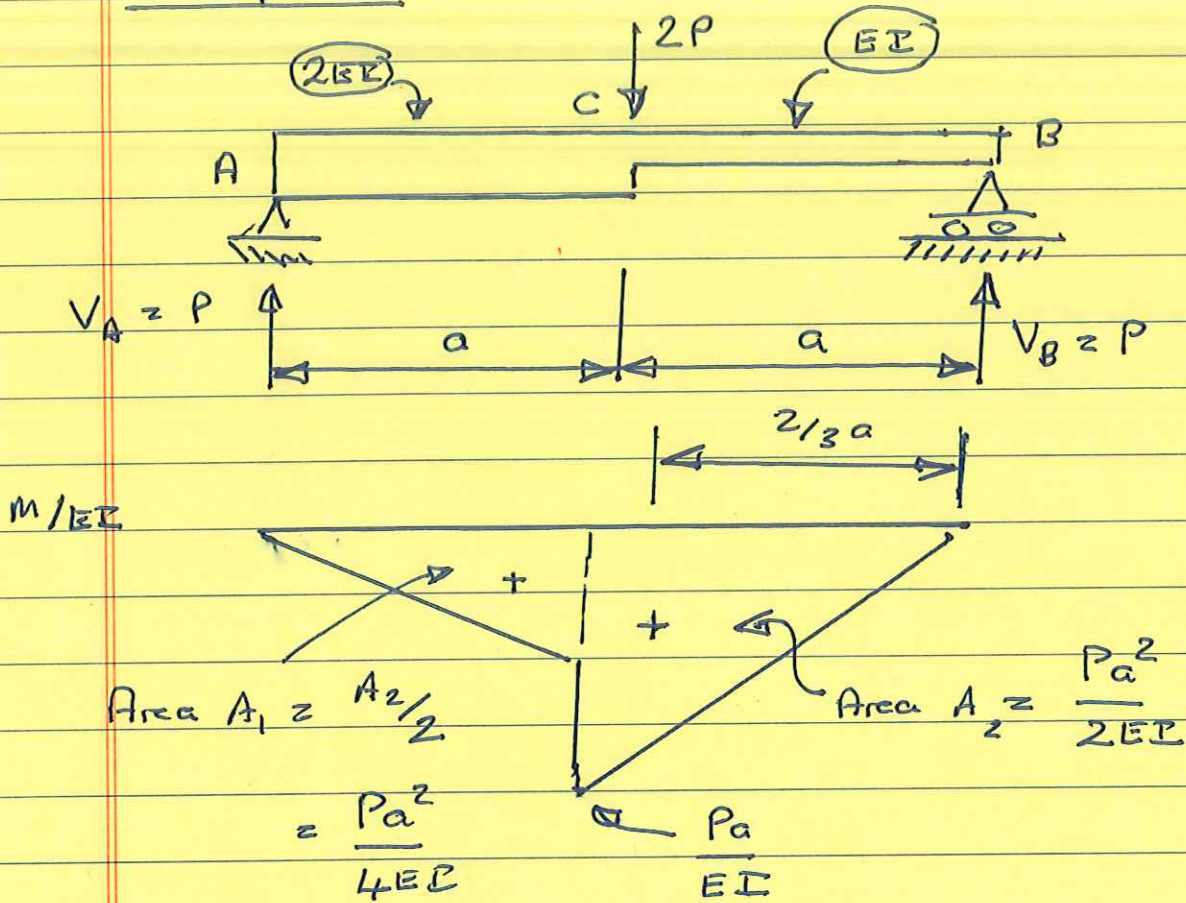 2P
2EI
EI
C
A
B
V_A = P
a
a
V_B = P
2/3 a
M/EI
+
+
Area A₁ = A₂/2
Area A₂ = Pa²/2EI
= Pa²/4EI
Pa/EI